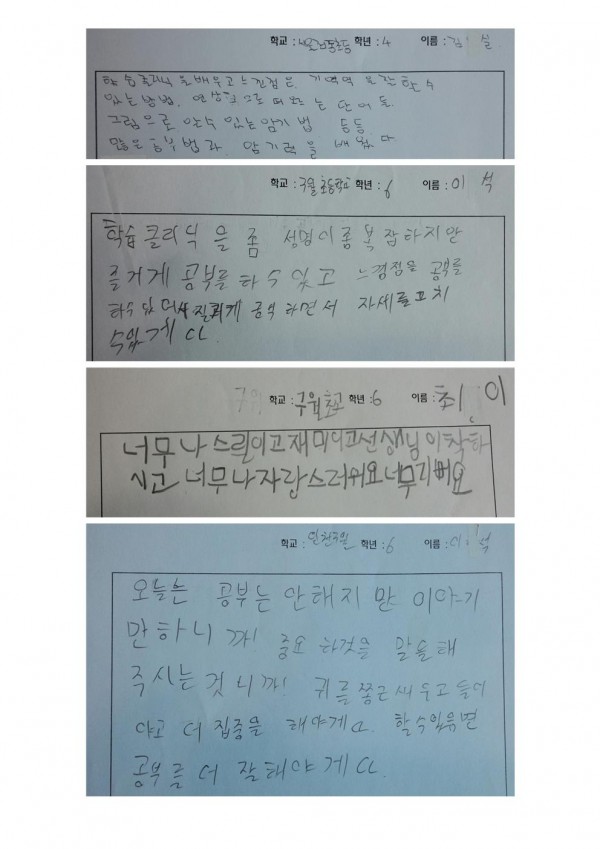 학교 : 학년 : 4 이름 : 김 실
학습클리닉 을 배우고 느낀점은. 기억력 을 잘 할 수
있는 방법. 연상 그로 떠 는 단어 를.
그림으로 안수 있는 암기 법 등등.
많은 공부 법과. 암기력을 배웠다
학교 : 구월초등학교 학년 : 6 이름 : 이 석
학습클리닉 을 좀 성명이 좀 복잡하지만
즐거게 공부를 하수 있고 느겸점을 공부를
하수 있 공부 하면서 자세를 고치
수있게다.
학교 : 구월초교 학년 : 6 이름 : 최 이
너무나 스릴이고 재미이고 선생님이 착하
시고 너무나 자랑스러워요 너무 기뻐요
학교 : 인천구월 학년 : 6 이름 : 이 석
오늘은 공부는 안해지만 이야기
만하니 까! 중요 하것을 말을해
주시는 것 니까! 귀를 쫑근 세우고 들어
야고 더 집중을 해야게다. 할수있유면
공부를 더 잘해야게다.